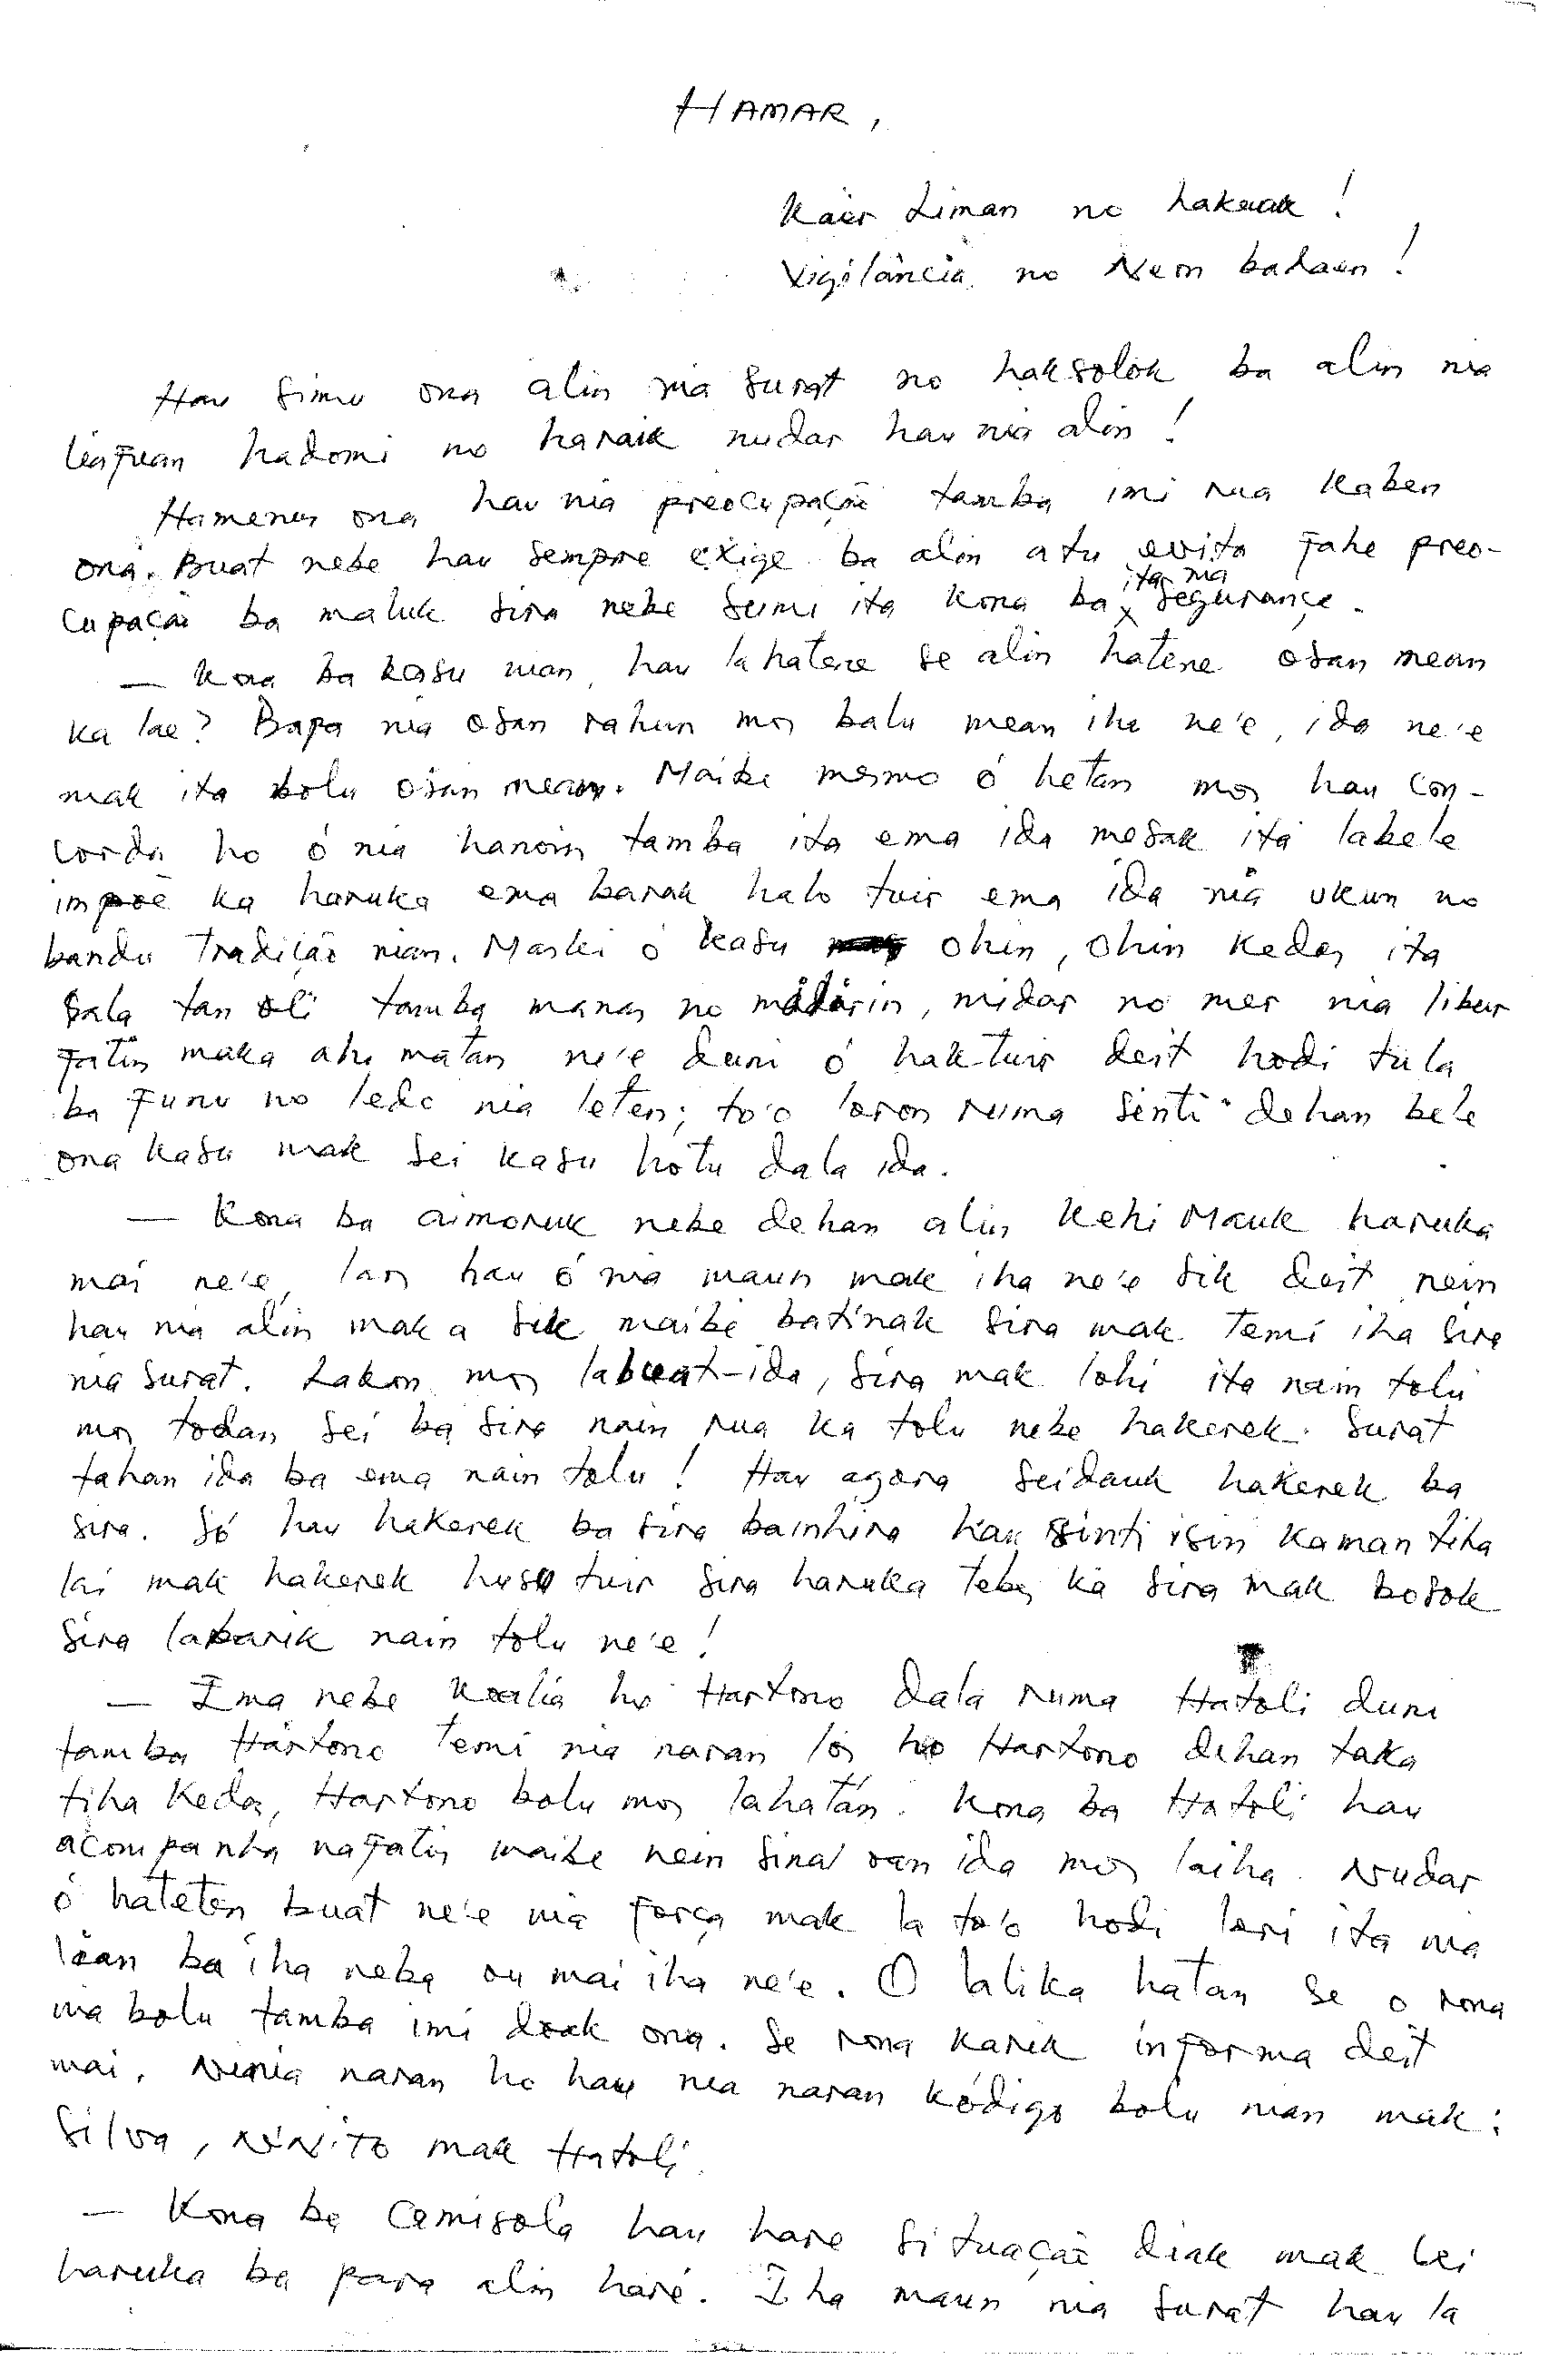 HAMAR,
Kaer Liman no hakuak!
Vigilância no Neon badaen!
Hau simu ona alin nia surat no haksolok ba alin nia
liafuan hadomi no haraik nudar hau nia alin!
Hamenus ona hau nia preocupação tamba imi rua kaben
ona. Buat nebe hau sempre exige ba alin atu evita fahe preo-
cupação ba maluk sira nebe sumi ita kona ba ita nia segurança.
— Kona ba kasu nian, hau lahatene se alin hatene osan mean
ka lae? Bapa nia osan rahun mos balu mean iha ne'e, ida ne'e
mak ita bolu osan mean. Maibe mesmo ó hetan mos hau con-
corda ho ó nia hanoin tamba ita ema ida mesak ita labele
impoe ka haruka ema barak halo tuir ema ida nia ukun no
bandu tradição nian. Maski ó kasu ohin, ohin kedas ita
sala tan oli tamba manas no malirin, midar no mer nia libur
fatin maka ahi matan ne'e duni ó haktuir deit hodi tula
ba funu no ledo nia leten; to'o loron ruma senti dehan bele
ona kasu mak sei kasu hotu dala ida.
— Kona ba aimoruk nebe dehan alin Kehi Mauk haruka
mai ne'e, los hau ó nia maun mak iha ne'e sik deit nein
hau nia alin maka sik maibe batinak sira mak temi iha sira
nia surat. Lakon mos labuat-ida, sira mak lohi ita nain tolu
mos todan sei ba sira nain rua ka tolu nebe hakerek surat
tahan ida ba ema nain tolu! Hau agora seidauk hakerek ba
sira. Só hau hakerek ba sira bainhira hau sinti isin kaman tiha
lai mak hakerek husu tuir sira haruka tebes ka sira mak bosok
sira labarik nain tolu ne'e!
— Ema nebe koalia ho Hartono dala ruma Hatoli duni
tamba Hartono temi nia naran los ho Hartono dehan taka
tiha kedas, Hartono bolu mos lahatán. Kona ba Hatoli hau
acompanha nafatin maibe nein sinal oan ida mos laiha. Nudar
ó hateten buat ne'e nia força mak la to'o hodi lori ita nia
lian ba iha neba ou mai iha ne'e. O lalika hatan se o rona
nia bolu tamba imi dook ona. Se rona karik informa deit
mai. Ninia naran ho hau nia naran kódigo bolu nian mak:
Silva, NiNiTO mak Hatoli.
— Kona ba Camisola hau hare situação diak mak lei
haruka ba para alin haré. Iha maun nia surat hau la